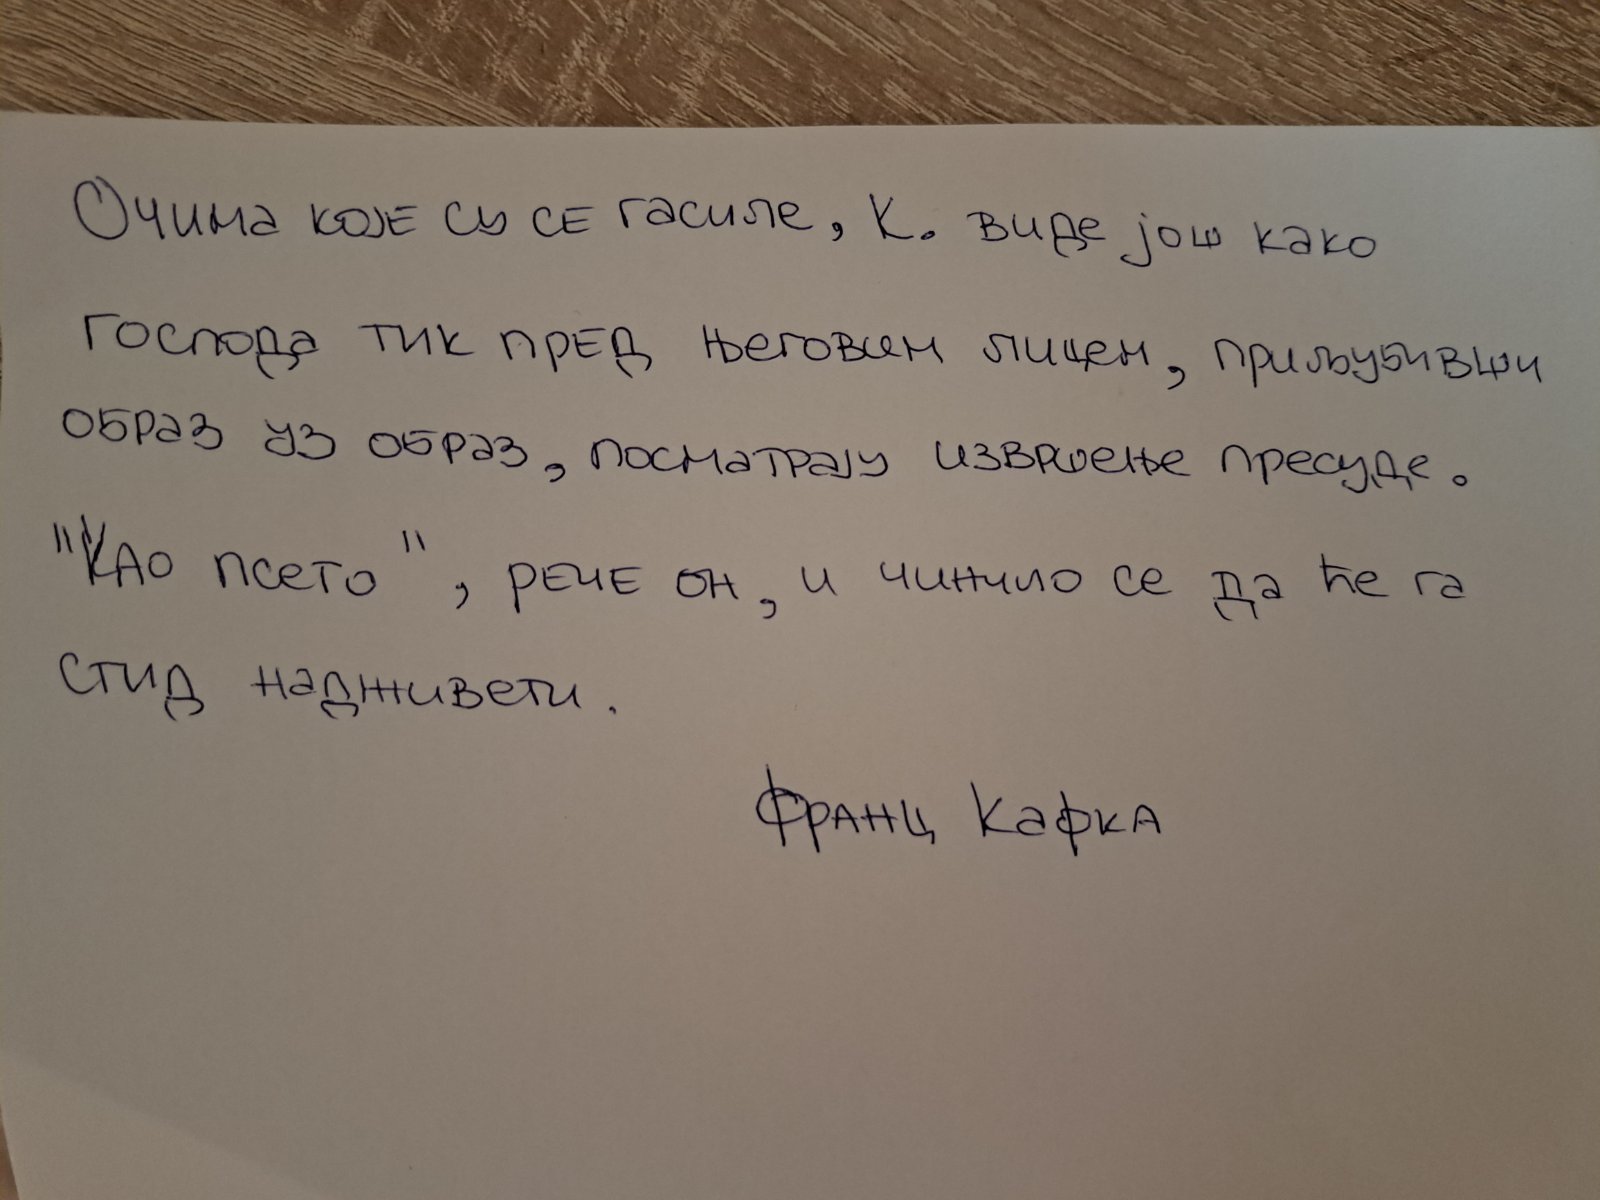 Очима које су се гасиле, К. виде још како
господа тик пред његовим лицем, приљубивши
образ уз образ, посматрају извршење пресуде.
"Као псето", рече он, и чинило се да ће га
стид надживети.
Франц Кафка